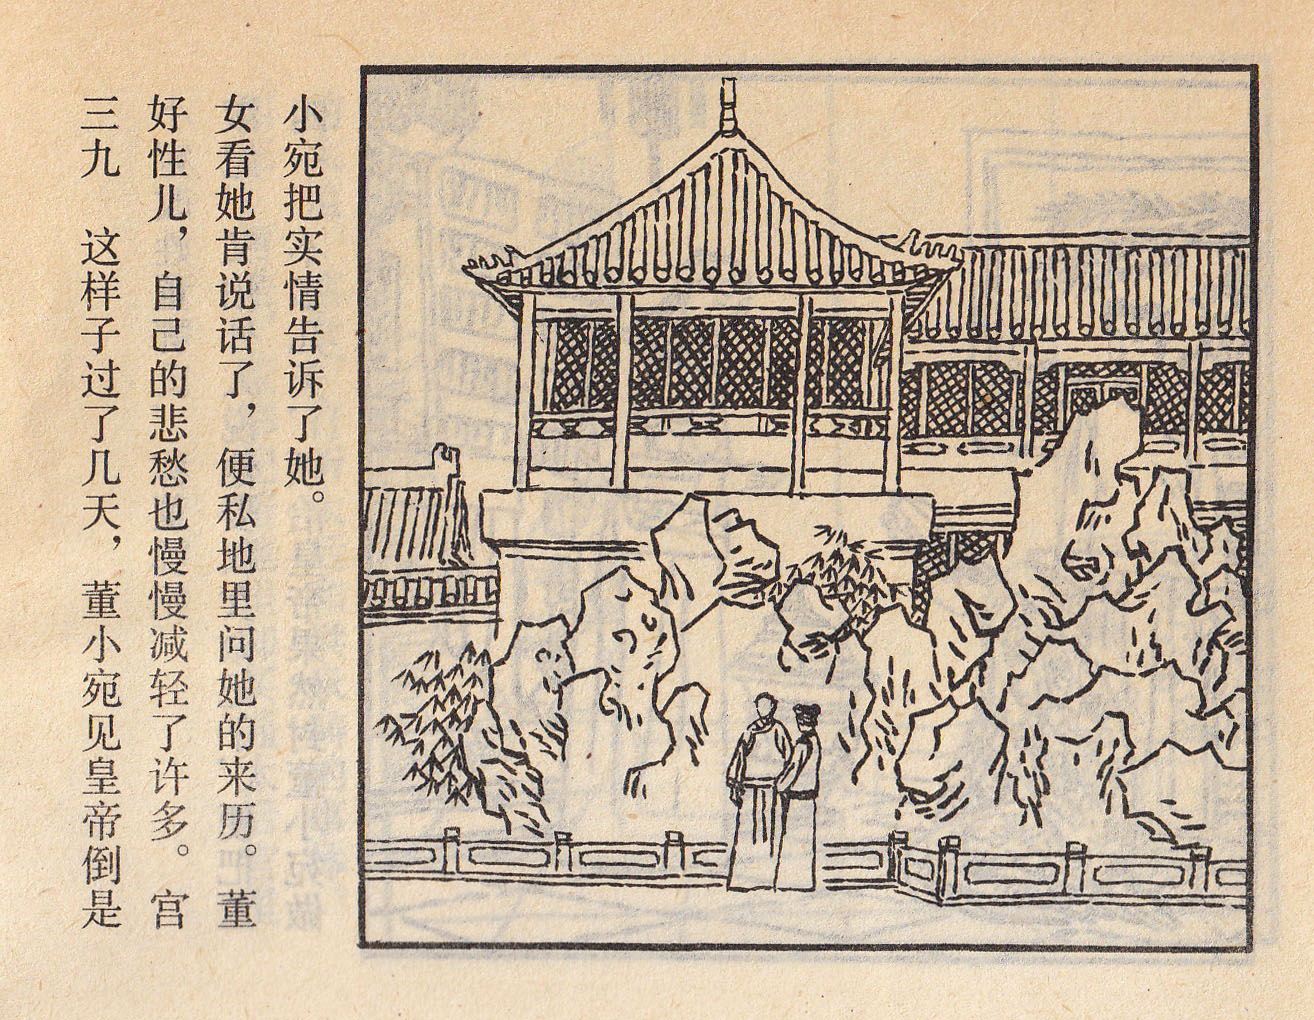 三九 这样子过了几天，董小宛见皇帝倒是
好性儿，自己的悲愁也慢慢减轻了许多。宫
女看她肯说话了，便私地里问她的来历。董
小宛把实情告诉了她。